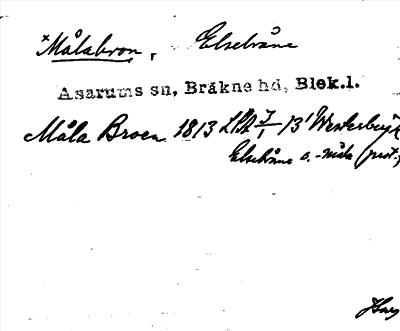 ×Målabron, Elsebråne
Asarums sn, Bräkne hd, Blek.l.
Måla Broen 1813 LMA 7/1 13
Elsebråne o. -måla (prot.)